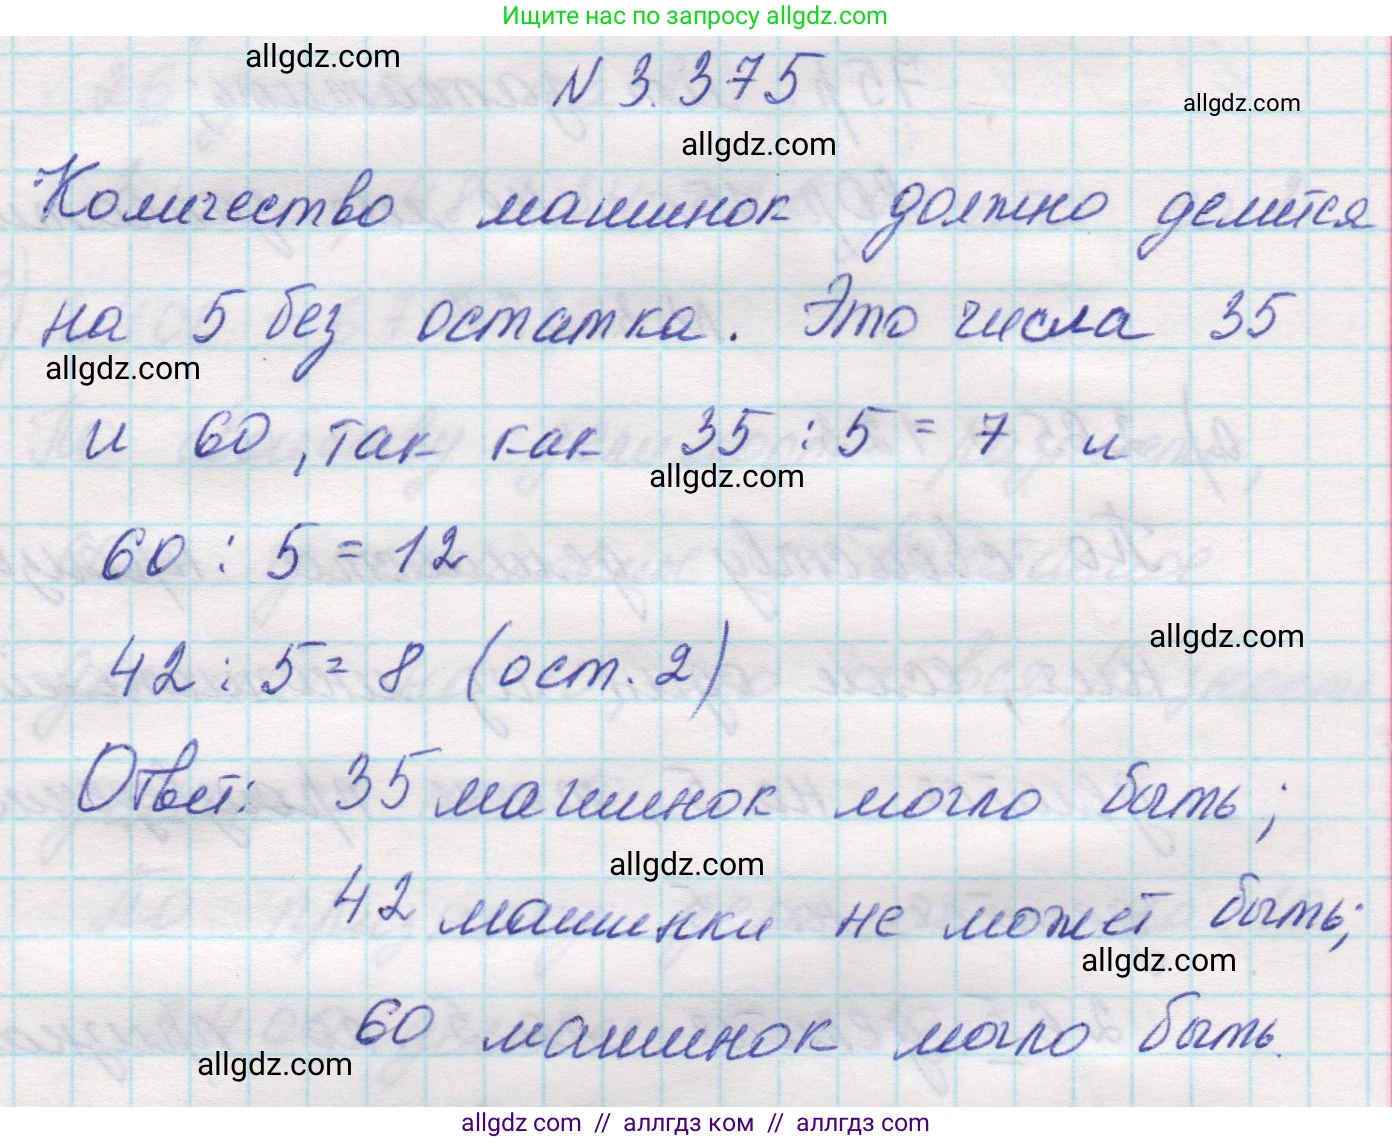 Ищите нас по запросу allgdz.com
allgdz.com
N 3.375
allgdz.com
allgdz.com
Количество машинок должно делится
на 5 без остатка. Это числа 35
allgdz.com
и 60, так как 35 : 5 = 7 и
allgdz.com
60 : 5 = 12
allgdz.com
42 : 5 = 8 (ост. 2)
Ответ: 35 машинок могло быть;
allgdz.com
42 машинки не может быть;
allgdz.com
60 машинок могло быть.
allgdz.com
allgdz com // аллгдз ком // аллгдз com